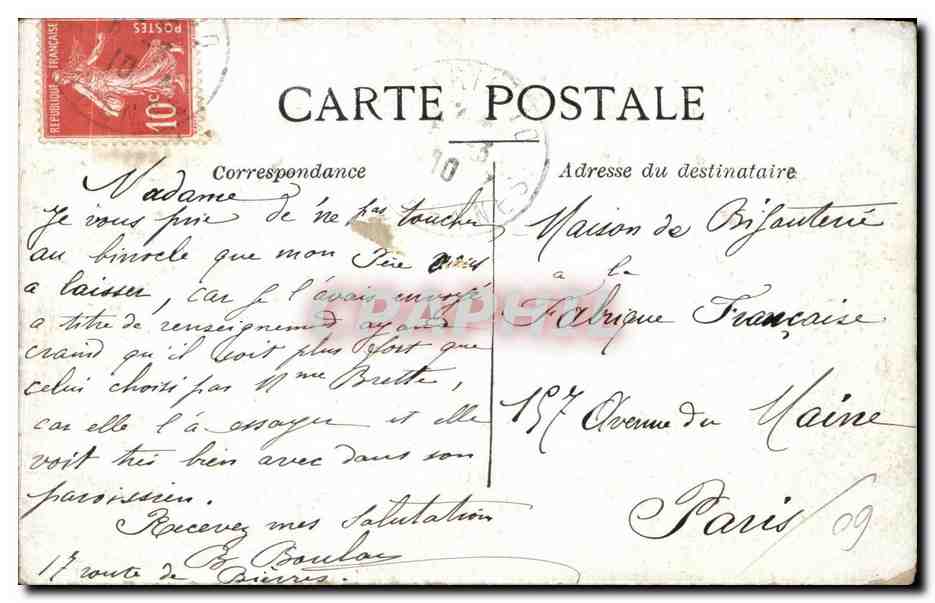 REPUBLIQUE FRANÇAISE
POSTES
10c
10
CARTE POSTALE
10 3
Correspondance
Adresse du destinataire
Madame
Je vous prie de ne pas toucher
au binocle que mon Père
a laisser, car je l'avais envoyé
a titre de renseignement ayand
craind qu'il soit plus fort que
celui choisi par Mme Brette,
car elle l'à essayer et elle
voit très bien avec dans son
paroissien.
Recevez mes Salutation
B. Boulais
17 route de Bièvres.
Maison de Bijouterie
a la
Fabrique Française
157 Avenue du Maine
Paris
09
APHO